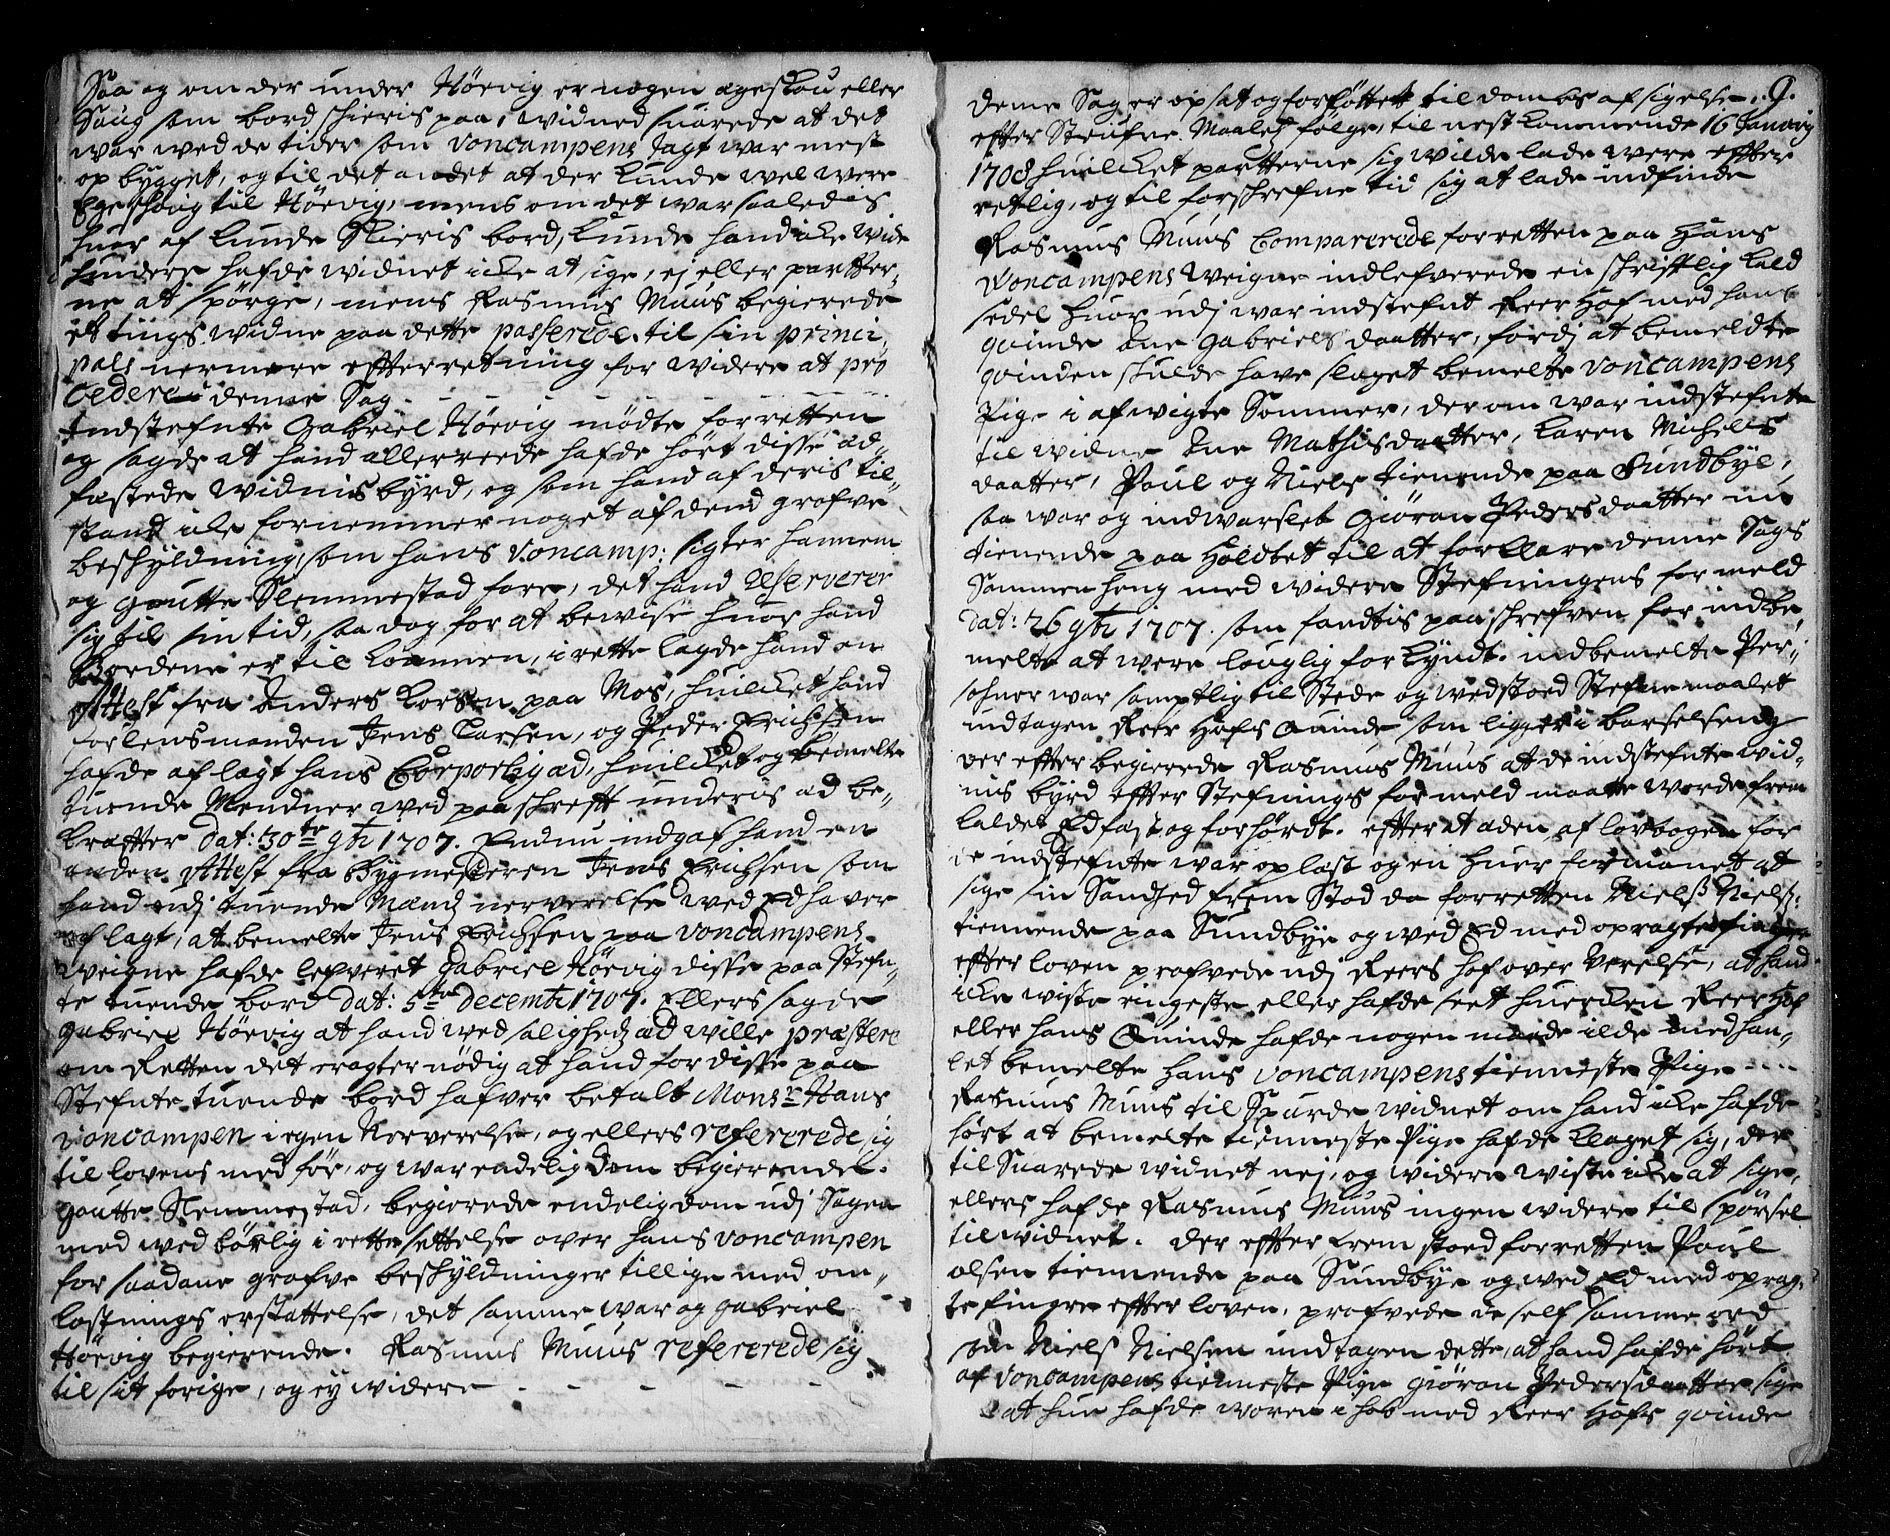 Saa og om der under Höevig er nogen egeskou eller
Saug som bord schieris paa, widned suarede at det
war wed de tider som Voncampens Jagt war mest
op bygget, og til det andet at der kunde wel were
Egeschoug til Höevig, mens om det war saaledis
huor af kunde Skieris bord, kunde hand icke wide
hindere hafde widnet icke at sige, ej eller partter-
ne at spörge, mens Rasmus Muus begierede
et tings widne paa dette passerede til sin princi
pals nermere effterretning for widere at pro
cedere i denne Sag - - - - - -
Indstefnte Gabriel Höevig mödte for retten
og sagde at hand allerreede hafde hört disse ad-
fæstede widnisbyrd, og som hand af deris til-
stand icke fornemmer noget af dend grofve
beskyldning, som hans Voncamp: sigter hannem
og Goutte Slemmestad fore, det hand reserverer
sig til sin tid, saa dog for at bewise huor hand
Bordene er til kommen, i rette lagde hand en
Attest fra Anders Korsen paa Mos, huilcket hand
for lensmanden Jens Larsen, og Peder Erichsen
hafde af lagt hans Corporlig æd, huilcket og bemelte
tuende Mendner wed paaschrefft underis æd be-
kræffter dat: 30te 9br 1707. Endnu indgaf hand en
anden Attest fra Bygmesteren Jens Erichsen som
hand udj tuende Mænds nerverelse wed Ed haver
af lagt, at bemelte Jens Erichsen paa Voncampens
weigne hafde lefveret Gabriel Höevig disse paa Stefn-
te tuende bord dat: 5te decembr 1707. Ellers sagde
Gabriel Höevig at hand wed salighedz æd wille præstere
om Retten det eragter nödig at hand for disse paa
Stefnte tuende bord hafver betalt Monsr Hans
Voncampen i egen Nerverelse, og ellers refererede sig
til lovens medför, og war endelig dom begierendes.
Goutte Slemmestad, begierede endelig dom udj Sagen
med wed börlig i rettesettelse over hans voncampen
for saadane grofve beskyldninger tillige med om-
kostnings erstattelse, det samme war og Gabriel
Höevig begierende. Rasmus Muus refererede sig
til sit forige, og ey widere - - - - -
9.
denne Sag er opsat og forföttet til dombs afsigelse
effter Steufne Maalets fölge, til nestkommende 16 Januarj
1708 huilcket partterne sig wilde lade were effter
retlig, og til forschrefne tid sig at lade indfinde
Rasmus Muus Comparerede for retten paa Hans
Voncampens weigne indlefverede en schrifftlig kald
sedel huor udj war indstefnt Reer Hof med hans
quinde Ane Gabriels daatter, fordj at bemeldte
quinden skulde have slaget bemelte Voncampens
Pige i afwigte Sommer, der om war indstefnte
til widne Ane Mathisdaatter, Karen Michels
daatter, Poul og Niels tienende paa Sundbye,
saa war og indwarslet Giöran Pedersdaatter nu
tienende paa Holdbet til at forklare denne Sags
Sammenheng med widere Stefningens formeld
dat: 26 9br 1707. som fandtis paaschrefven for indbe-
melte at were louglig forkyndt. indbemelte Per-
sohner war samptlig til Stede og wedstoed Stefnemaalet
undtagen Reer Hofs Quinde som ligger i barselseng
der effter begierede Rasmus Muus at de indstefnte wid-
nis byrd effter Stefnings formeld maatte worde frem
kaldet Edfæst og forhördt. effter at æden af lovbogen for
de indstefnte war oplæst og en huer formanet at
sige sin Sandhed frem Stod da for retten Niels Niels:
tiennende paa Sundbye og wed Ed med opragte fingre
effter loven profvede udj Reers Hof over verelse, at hand
icke wiste ringeste eller hafde seet huercken Reer Hof
eller hans Quinde hafde nogen maade ilde medhan-
let bemelte Hans Voncampens tienneste Pige - - - -
Rasmus Muus til Spurde widnet om hand icke hafde
hört at bemelte tienneste Pige hafde klaget sig, der
til Suarede widnet nej, og widere wiste icke at sige,
ellers hafde Rasmus Muus ingen widere til spörsel
til widnet. Der effter frem stoed for retten Poul
olsen tiennende paa Sundbye og wed Ed med oprag-
te fingre effter loven, profvede de self samme ord
som Niels Nielsen undtagen dette, at hand hafde hört
af Voncampens tienneste Pige Giöran Pedersdaatter sige
at hun hafde woren i hob med Reer Hofs quinde